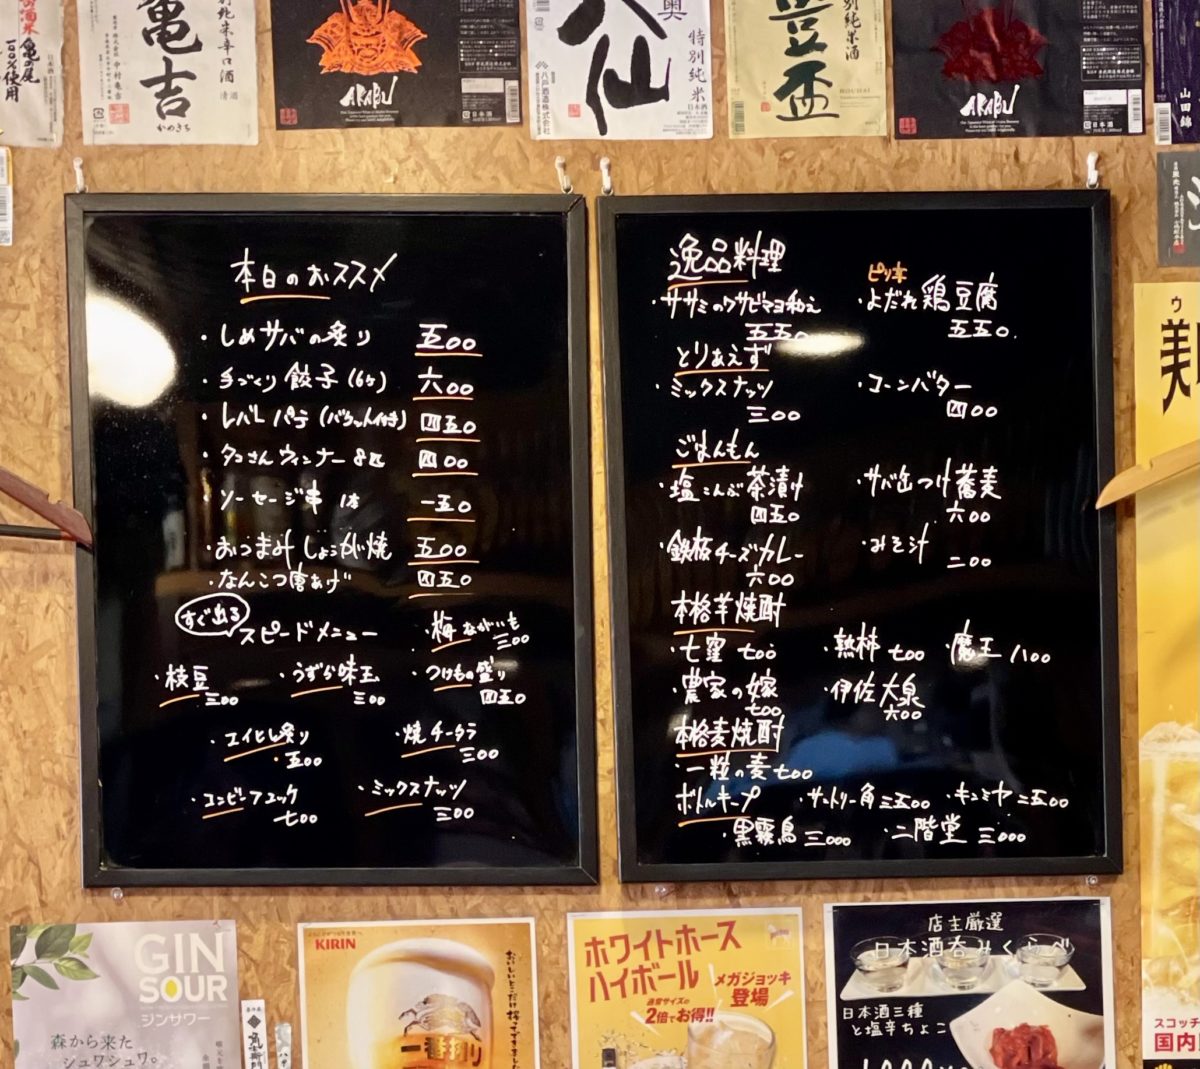 亀の尾
100%使用
亀吉
かめきち
ARABU
八仙
特別純米
八戸酒造株式会社
豊盃
特別純米酒
HOUHAI
ARABU
山田錦
本日のおススメ
・しめサバの炙り 五00
・手づくり餃子(6ケ) 六00
・レバーパテ(バケット付き) 四五0
・タコさんウィンナー8匹 四00
・ソーセージ串 1本 一五0
・おつまみしょうが焼 五00
・なんこつ唐あげ 四五0
すぐ出る
スピードメニュー
・梅ながいも 三00
・枝豆 三00
・うずら味玉 三00
・つけもの盛り 四五0
・エイヒレ炙り 五00
・焼チータラ 三00
・コンビーフユッケ 七00
・ミックスナッツ 三00
逸品料理
・ササミのワサビマヨ和え 五五0
ピリ辛
・よだれ鶏豆腐 五五0.
とりあえず
・ミックスナッツ 三00
・コーンバター 四00
ごはんもん
・塩こんぶ茶漬け 四五0
・サバ出つけ蕎麦 六00
・鉄板チーズカレー 六00
・みそ汁 二00
本格芋焼酎
・七窪 七00
・熟柿 七00
・魔王 八00
・農家の嫁 七00
・伊佐大泉 六00
本格麦焼酎
・一粒の麦 七00
ボトルキープ
・サントリー角 三五00
・キンミヤ 二五00
・黒霧島 三000
・二階堂 三000
GIN
SOUR
ジンサワー
森から来た
シュワシュワ。
KIRIN
おいしいとこだけ搾ってできました
一番搾り
ホワイトホース
ハイボール
メガジョッキ
登場
通常サイズの
2倍でお得!!
店主厳選
日本酒呑みくらべ
日本酒三種
と塩辛ちょこ
ウ
美
スコッチ
国内